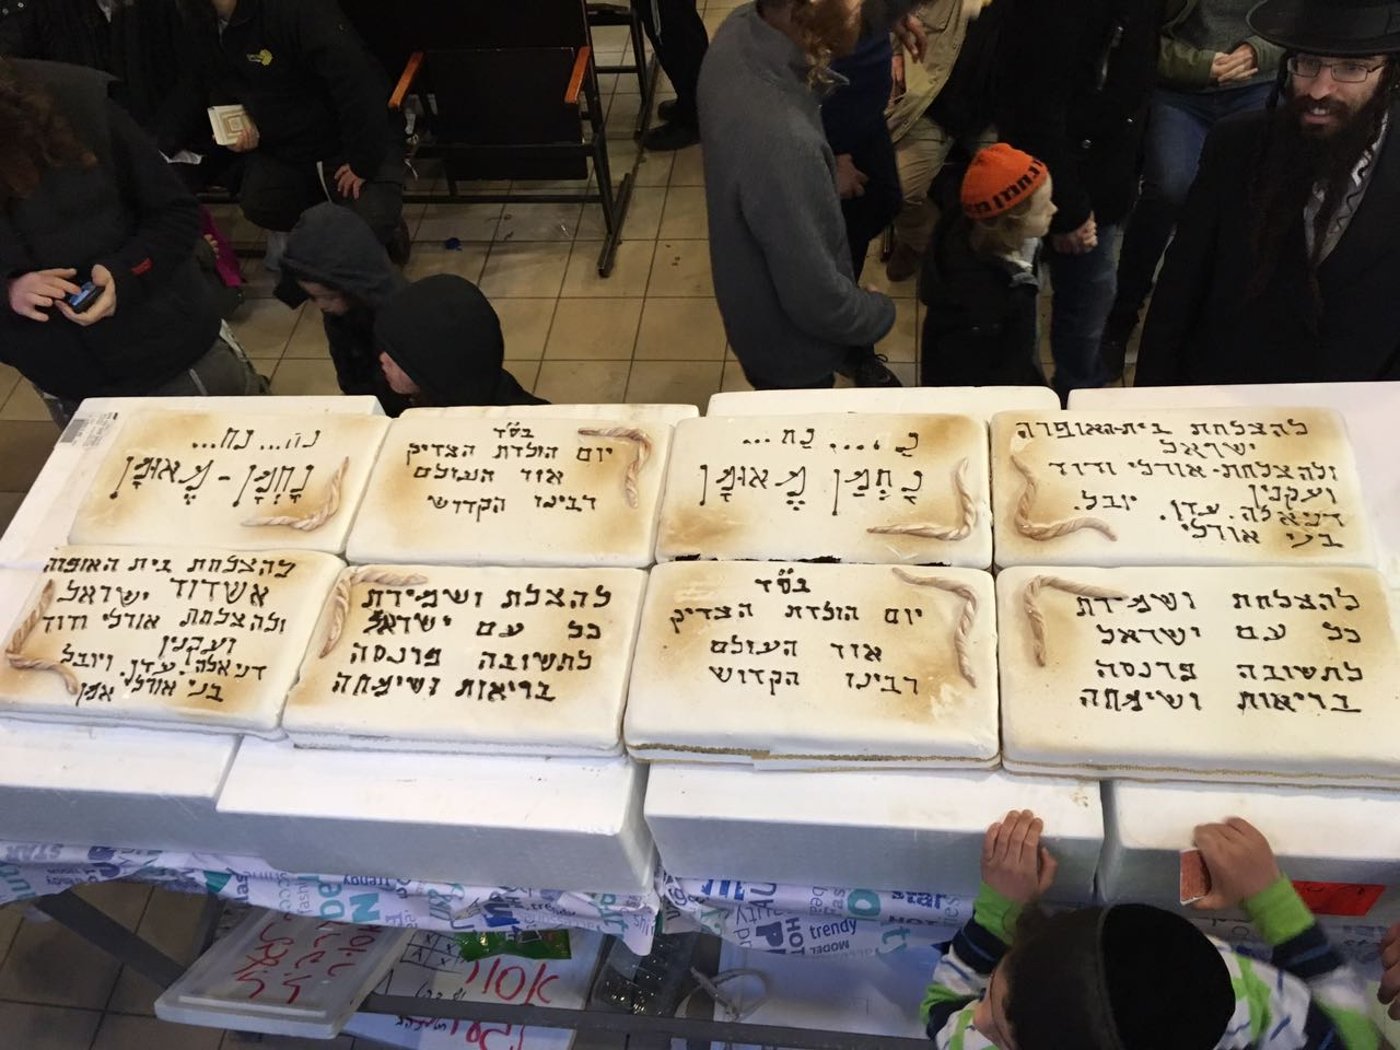 נ... נח...
נַחְמָן - מֵאוּמָן
בס"ד
יום הולדת הצדיק
אור העולם
רבינו הקדוש
נַ... נַח...
נַחְמָן מֵאוּמָן
להצלחת בית-האופרה
ישראל
ולהצלחת-אודלי ודוד
ועקנין
דניאלה. עדן. יובל.
בני אודלי
להצלחת בית האופרה
אשדוד ישראל
ולהצלחת אודלי ודוד
ועקנין
דניאלה. עדן. ויובל
בני אודלי אמן
להצלת ושמירת
כל עם ישראל
לתשובה פרנסה
בריאות ושימחה
בס"ד
יום הולדת הצדיק
אור העולם
רבינו הקדוש
להצלחת ושמירת
כל עם ישראל
לתשובה פרנסה
בריאות ושימחה
trendy
HOT
MODEL
star
אסור